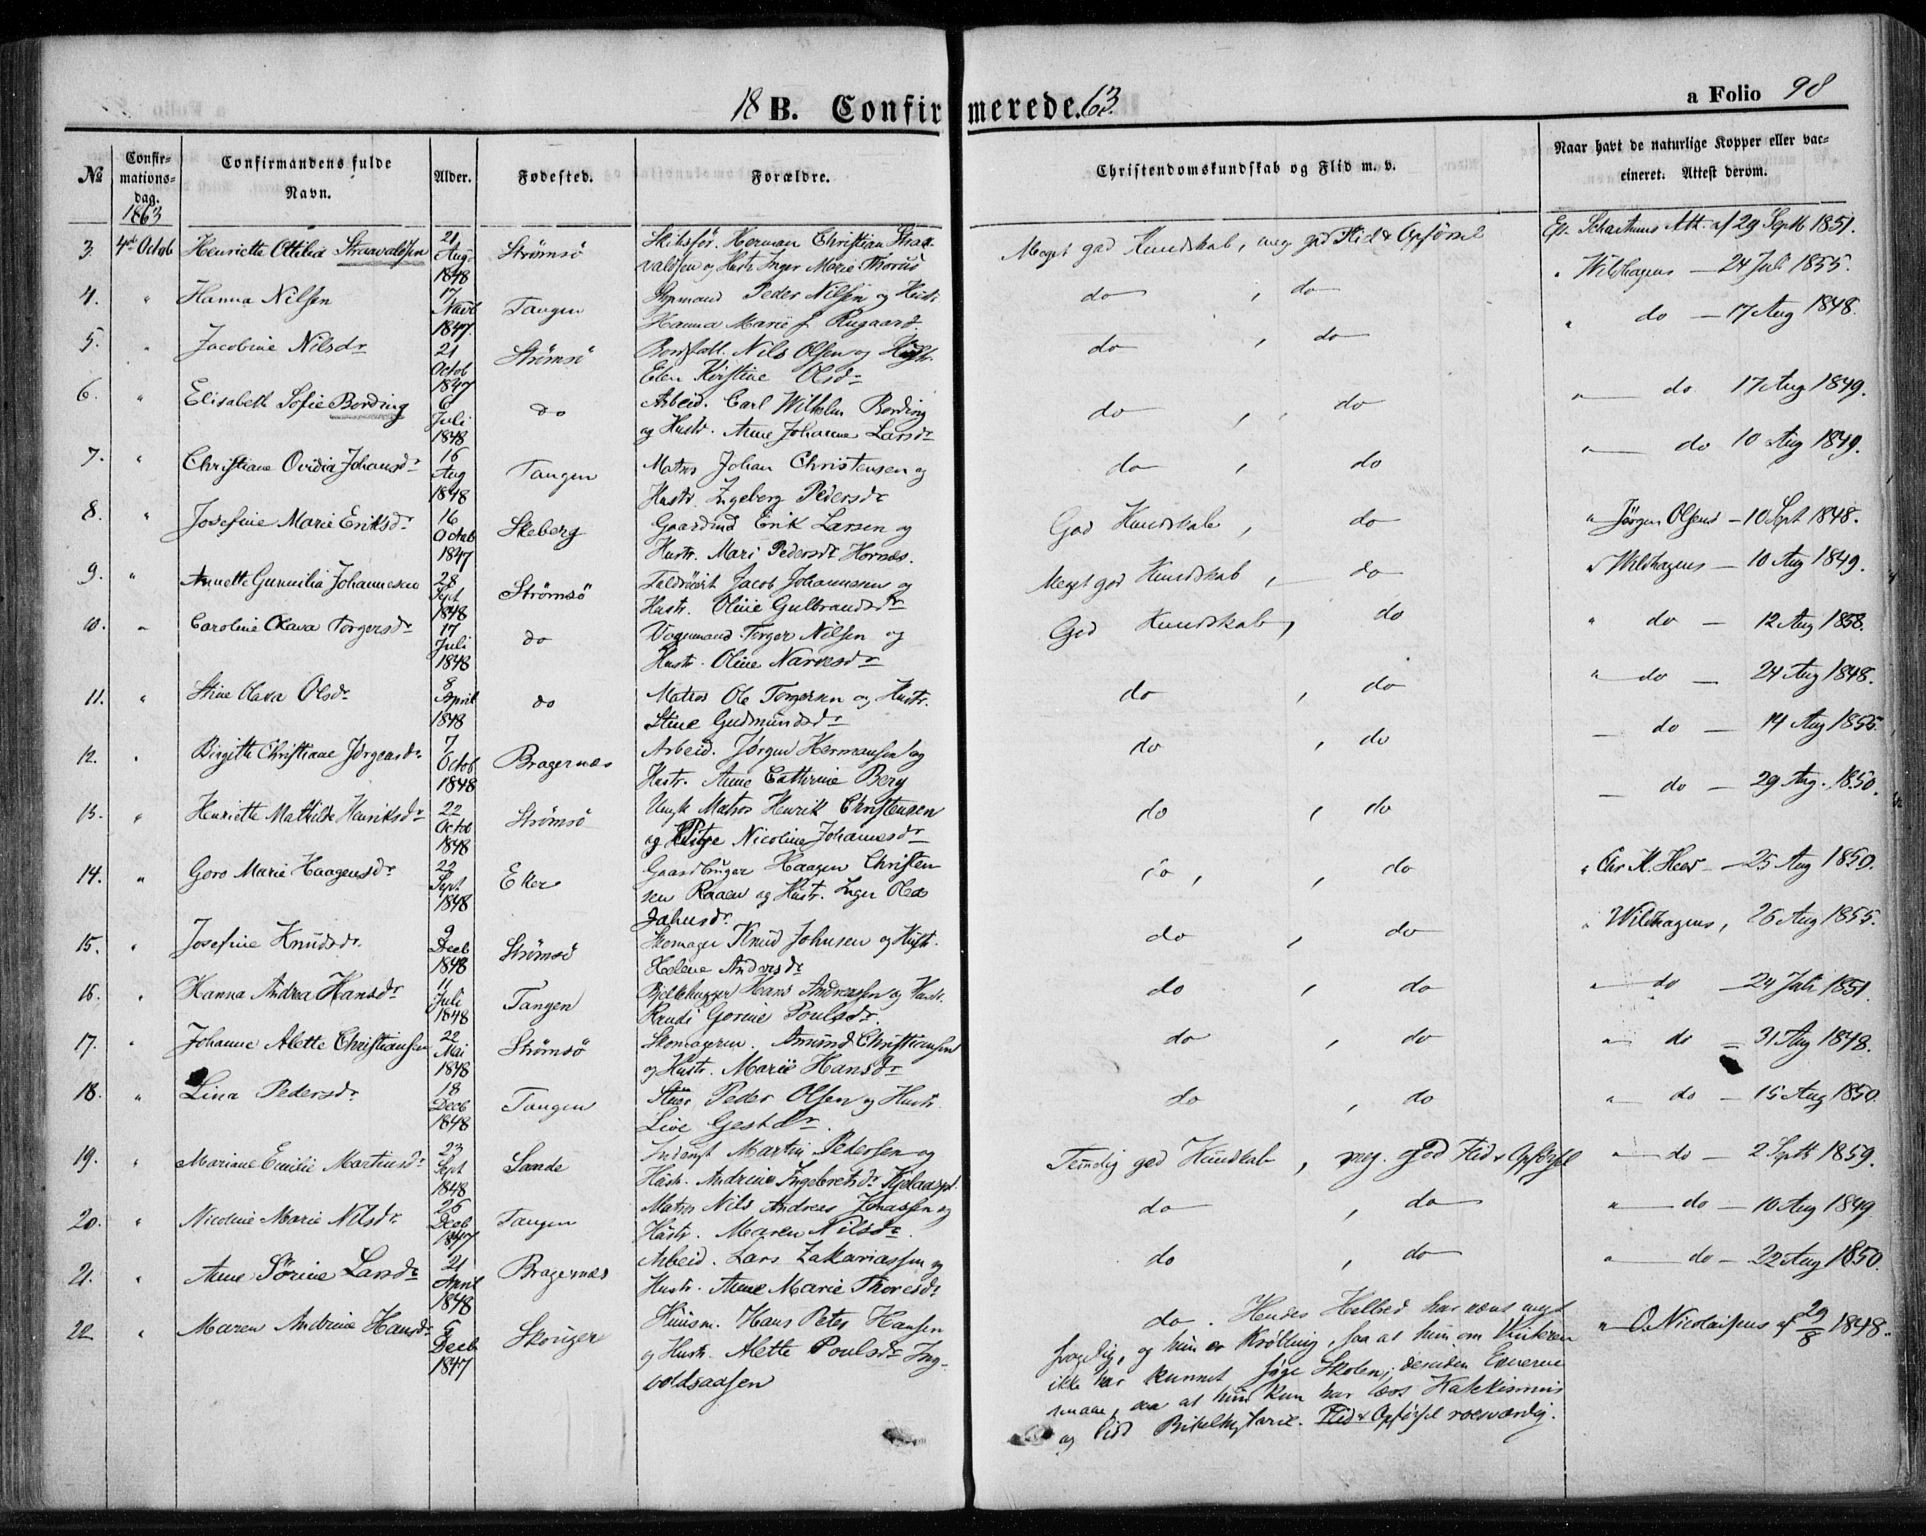 18 B. Confirmerede. 63.
a Folio 98
No
Confirmations-dag.
Confirmandens fulde Navn.
Alder.
Fødested.
Forældre.
Christendomskundskab og Flid m. v.
Naar havt de naturlige Kopper eller vaccineret. Attest derom.
1863
3. 4de Octob Henriette Ottilia Straavaldsen 21 Aug 1848 Strømsø Herman Christian Straavaldsen og Hustr Inger Marie Meget god Kundskab, meg god Flid & Opførsel Att. af 29 Septb 1851.
4. " Hanna Nilsen 17 Novb 1847 Tangen Peder Nilsen og Hustr Hanna Marie f. Rugaard do , do " Wildhagens – 24 Juli 1855.
5. " Jacobine Nilsdr 21 Octob 1847 Strømsø Nils Olsen og Hustr. Elen Kirstine Olsdr do , do " do – 17 Aug 1848.
6. " Elisabeth Sofie Bording 6 Juli 1848 do Arbeid. Carl Wilhelm Bording og Hustr. Anne Johanne Larsdr do , do " do 17 Aug 1849.
7. " Christiane Ovidia Johansdr 16 Aug 1848 Tangen Matros Johan Christensen og Hustr. Ingeborg Pedersdr do , do " do 10 Aug 1849.
8. " Josefine Marie Eriksdr 16 Octob 1847 Skeberg Gaardmd Erik Larsen og Hustr. Mari Pedersdr Hornæs. God Kundskab , do " Jørgen Olsens – 10 Sept 1848.
9. " Annette Gunnilia Johannesen 28 Sept 1848 Strømsø Jacob Johannesen og Hustr. Oline Gulbrandsdr Meget god Kundskab , do " Wildhagens – 10 Aug 1849.
10. " Caroline Olava Torgersdr 17 Juli 1848 do Vognmand Torger Nilsen og Hustr. Oline Narvesdr God Kundskab, do " do – 12 Aug 1858.
11. " Stine Olava Olsdr 8 April 1848 do Matros Ole Torgersen og Hustr. Stine Gudmundsdr do , do " do – 24 Aug 1848.
12. " Birgitte Christiane Jørgensdr 7 Octob 1848 Bragernæs Arbeid. Jørgen Hermansen og Hustr. Anne Cathrine Berg do , do – do – 14 Aug 1855.
13. " Henriette Mathilde Henriksdr 22 Octob 1848 Strømsø Matros Henrik Christensen og Pige Nicoline Johannesdr do , do – do – 29 Aug. 1850.
14. " Goro Marie Haagensdr 22 Sept 1848 Eker Gaardbruger Haagen Christensen Raaen og Hustr. Inger Olea do , , do " – 25 Aug 1850.
15. " Josefine Knudsdr 9 Decb 1848 Strømsø Skomager Knud Johnsen og Hustr. Helene Andersdr do , do " Wildhagens, 26 Aug 1855.
16. " Hanna Andrea Hansdr 11 Juli 1848 Tangen Bjelkehugger Hans Andreasen og Hustr. Randi Gorine Poulsdr. do , do " do – 24 Juli 1851.
17. " Johanne Alette Christiansen 22 Mai 1848 Strømsø Skomagersv. Amund Christiansen og Hustr. Marie Hansdr do , do " do – 31 Aug 1848.
18. " Lina Pedersdr 18 Decb 1848 Tangen Peder Olsen og Hustr. Live Gestdr. do , do " do – 15 Aug 1850.
19. " Mariane Emilie Martinsdr 23 Sept 1848 Sande Martin Pedersen og Hustr. Andrine Ingebretsdr Temelig god Kundskab , meg. god Flid & Opførsel " do – 2 Septb 1859.
20. " Nicoline Marie Nilsdr 25 Decb 1847 Tangen Matros Nils Andreas Jonassen og Hustr. Maren Nilsdr. do , do " do – 10 Aug 1849
21. " Anne Sørine Larsdr 21 April 1848 Bragernæs Arbeid. Lars Zakariassen og Hustr. Anne Marie Thoresdr do , do " do – 22 Aug 1850.
22 " Maren Andrine Hansdr 6 Decb 1847 Skouger Huusm. Hans Peter Hansen og Hustr. Alette Poulsdr Ingvoldsaasen do. Hendes Helbred har været meget svagelig, og hun er Krøbling, saa at hun om Vinteren ikke har kunnet søge Skolen; desuden Evnerne smaae, saa at hun kun har læst Katekismus og lidt Bibelhistorie. Flid & Opførsel rosværdig. " O. Nicolaisens af 29/8 1848.